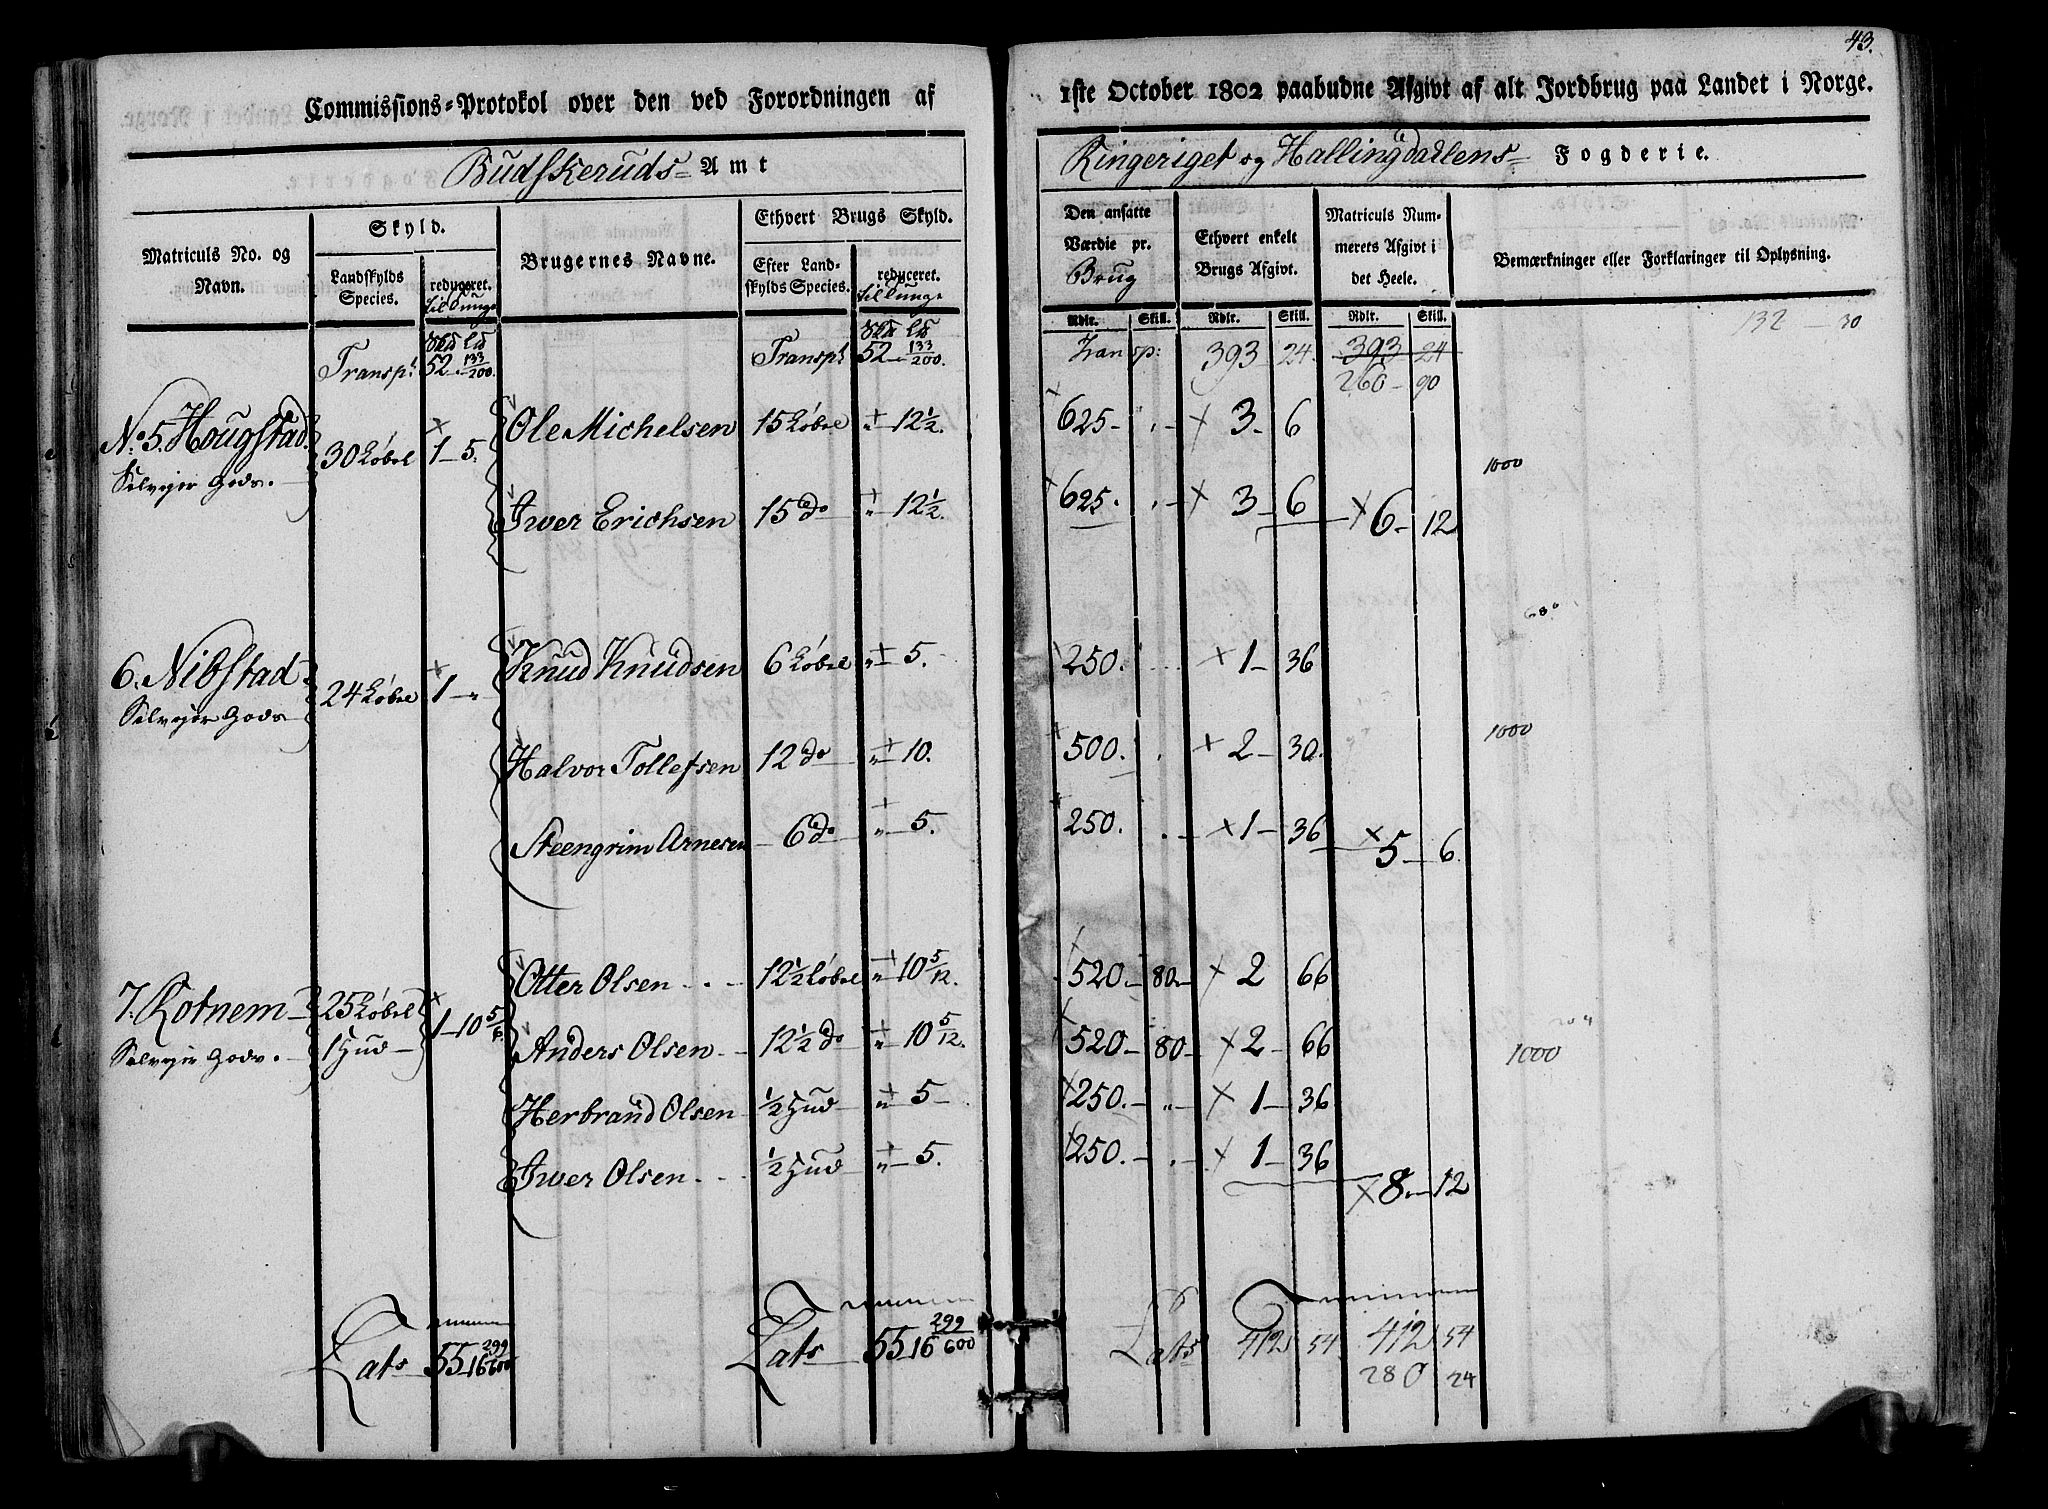 43.
Commissions=Protokol over den ved Forordningen af
1ste October 1802 paabudne Afgivt af alt Jordbrug paa Landet i Norge.
Budskeruds= Amt
Ringeriget og Hallingdarlens= Fogderie.
Matriculs No. og Navn.
Skyld.
Landskylds Species.
reduceret.
til Tunge
Brugernes Navne.
Ethvert Brugs Skyld.
Efter Landskylds Species.
reduceret.
til Tunge
Den ansatte Værdie pr. Brug
Ethvert enkelt Brugs Afgivt.
Matriculs Nummerets Afgivt i det Heele.
Bemærkninger eller Forklaringer til Oplysning.
Rdlr. Skill. Rdlr. Skill. Rdlr. Skill.
132 — 30
Transpt 52 133/200. Transpt 52 133/200. Transp: 393 24. 393 24
260 — 90
No. 5. Hougstad 30 Løbol 1 — 5. Ole Michelsen 15 Løbol " 12½. 625 — . — × 3 — 6
Selvejer Gods. 1000
Iwer Erichsen 15 do " 12½. 625. . — × 3 — 6 × 6 — 12
680
6. Nibstad 24 Løbol 1 — " Knud Knudsen 6 Løbol " 5. 250. × 1 — 36
Selvejer Gods
Halvor Tollefsen 12 do " 10. 500. . × 2 — 30. 1000
Steengrim Arnesen — 6 do " 5. 250. . — × 1 — 36 × 5 — 6.
7. Rotnem 25 Løbol 1 — 10 5/6 Otter Olsen 12½ Løbol " 10 5/12. 520 — 80 — × 2 66
Selvejer Gods. 1 Hud Anders Olsen 12½ do " 10 5/12. 520 — 80 — × 2 — 66 1000
Herbrand Olsen ½ Hud " 5 — 250. — " — × 1 — 36
Iwer Olsen ½ Hud " 5. 250. — . — × 1 — 36
× 8 — 12
Lats 55 — 16 299/600 Lats 55 16 299/600 Lats 412 54 412 54
280 24